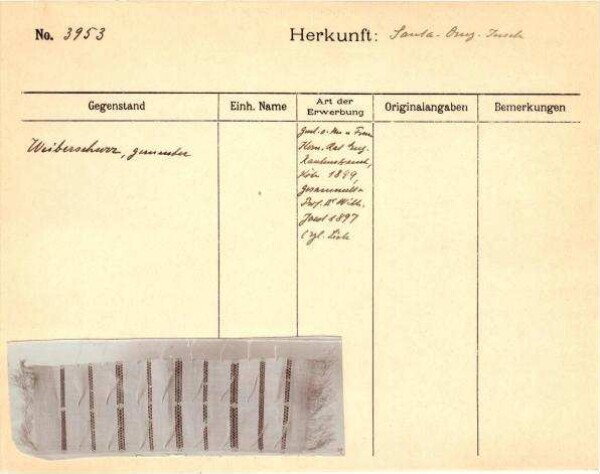 No. 3953
Herkunft: Santa-Cruz-Inseln
Gegenstand
Einh. Name
Art der Erwerbung
Originalangaben
Bemerkungen
Weiberschurz, gemustert
Frau
Rautenstrauch,
Köln 1899,
Gesammelt v.
Prof. Dr Wilh.
Joest 1897
(vgl. Liste